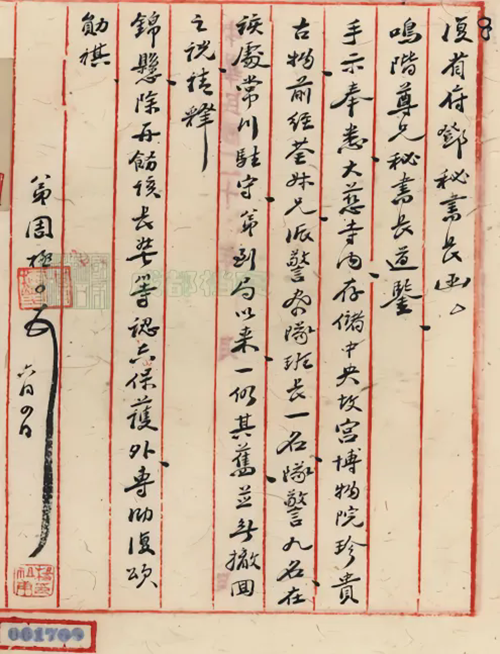 復省府鄧秘書長函
鳴階尊兄秘書長道鑒
手示奉悉大慈寺内存儲中央故宮博物院珍貴
古物前經兄派警察隊班長一名隊警九名在
該處常川駐守弟到局以來一仍其舊並無撤回
之說請釋
錦懸除再飭該長警等認真保護外專此復頌
勛祺
弟周極
六月四日